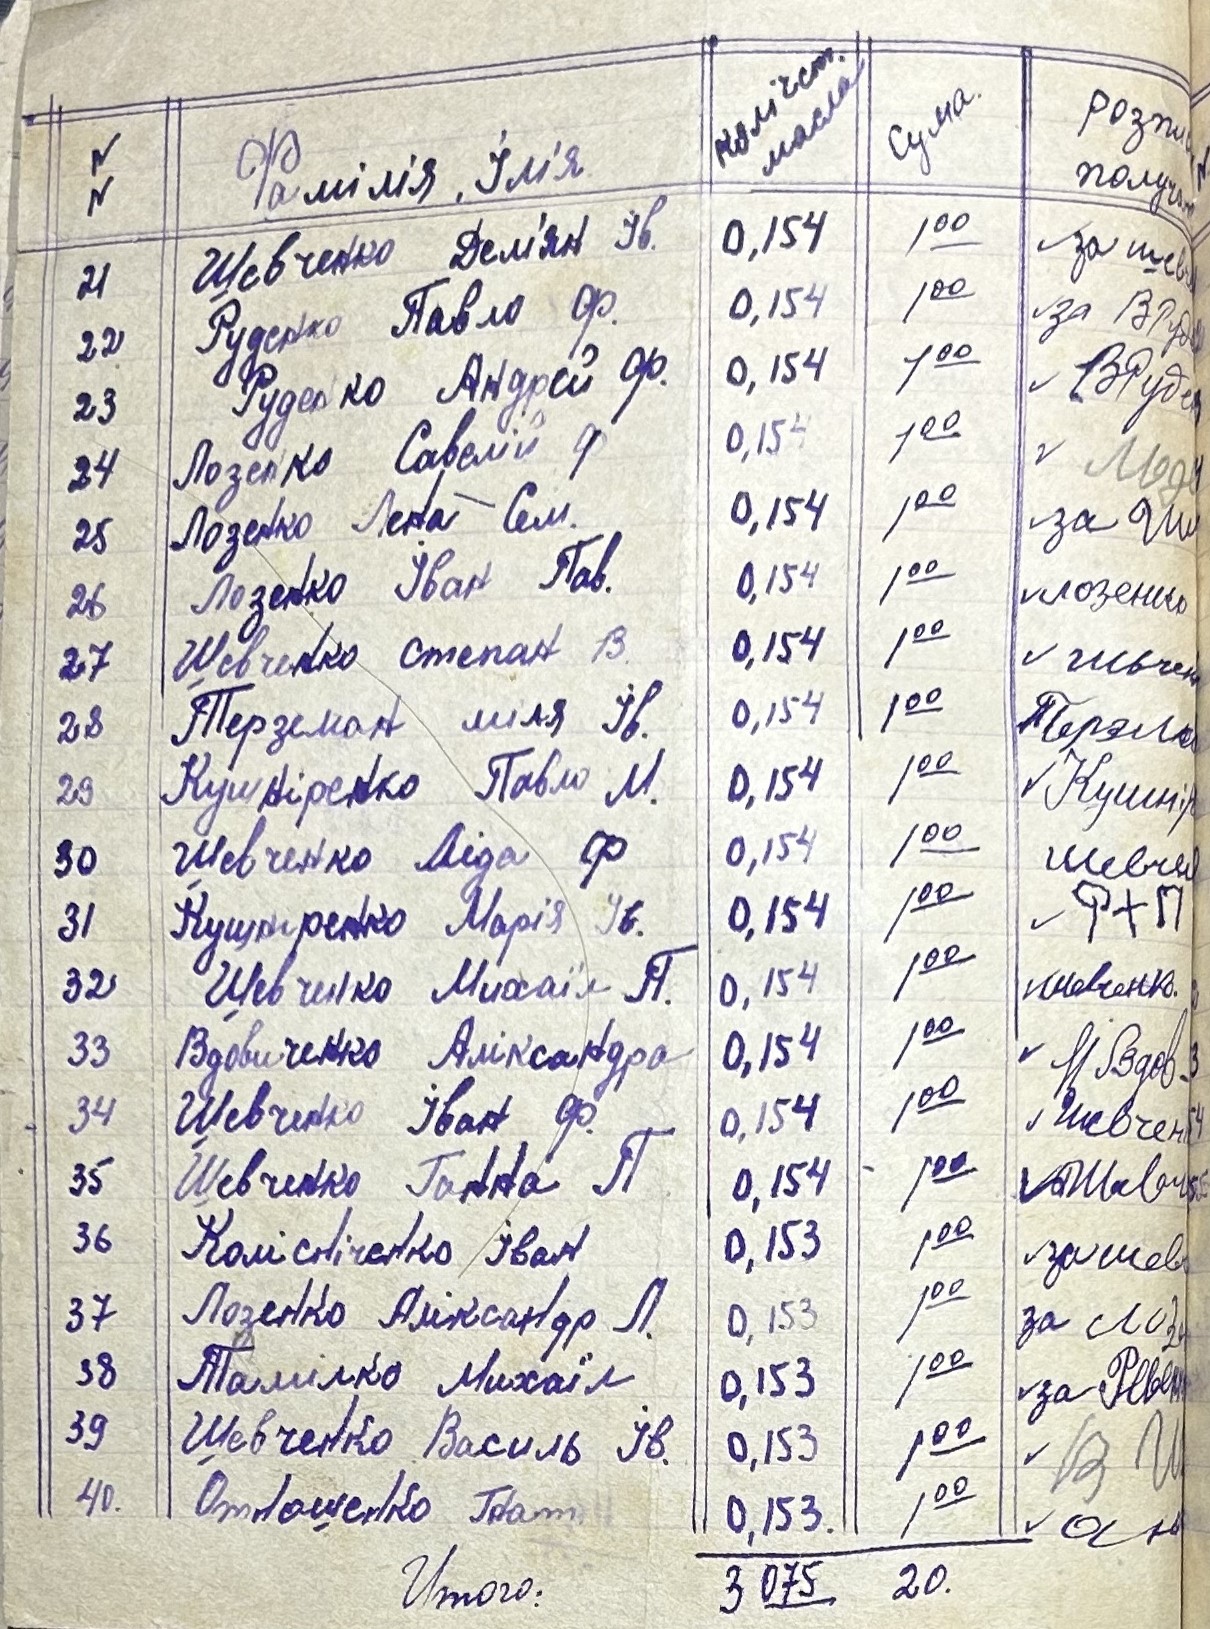 N N Фамілія, Імʼя. Коліест. масла Сума. Розпи получ
21 Шевченко Демʼян Ів. 0,154 1 00 за шев
22 Руденко Павло Ф. 0,154 1 00 за В Руд
23 Руденко Андрей Ф. 0,154 1 00 В Руден
24 Лозенко Савелій Ф 0,154 1 00
25 Лозенко Лена Сем. 0,154 1 00 за
26 Лозенко Іван Пав. 0,154 1 00 лозенко
27 Шевченко степан В. 0,154 1 00
28 Терземан миля Ів. 0,154 1 00
29 Кушніренко Павло М. 0,154 1 00 Кушнір
30 Шевченко Ліда Ф 0,154 1 00 шевче
31 Кушніренко Марія Ів. 0,154 1 00
32 Шевченко Михаїл П. 0,154 1 00 шевченко.
33 Вдовиченко Аліксандра 0,154 1 00 Вдов
34 Шевченко Іван Ф. 0,154 1 00 Шевчен
35 Шевченко Ганна П 0,154 1 00
36 Колісніченко Іван 0,153 1 00 за шев
37 Лозенко Аліксандр Л. 0,153 1 00 за Лоз
38 Тамілко Михаїл 0,153 1 00 за
39 Шевченко Василь Ів. 0,153 1 00 В Ш
40. Гнат 0,153. 1 00
Итого: 3 075 20.